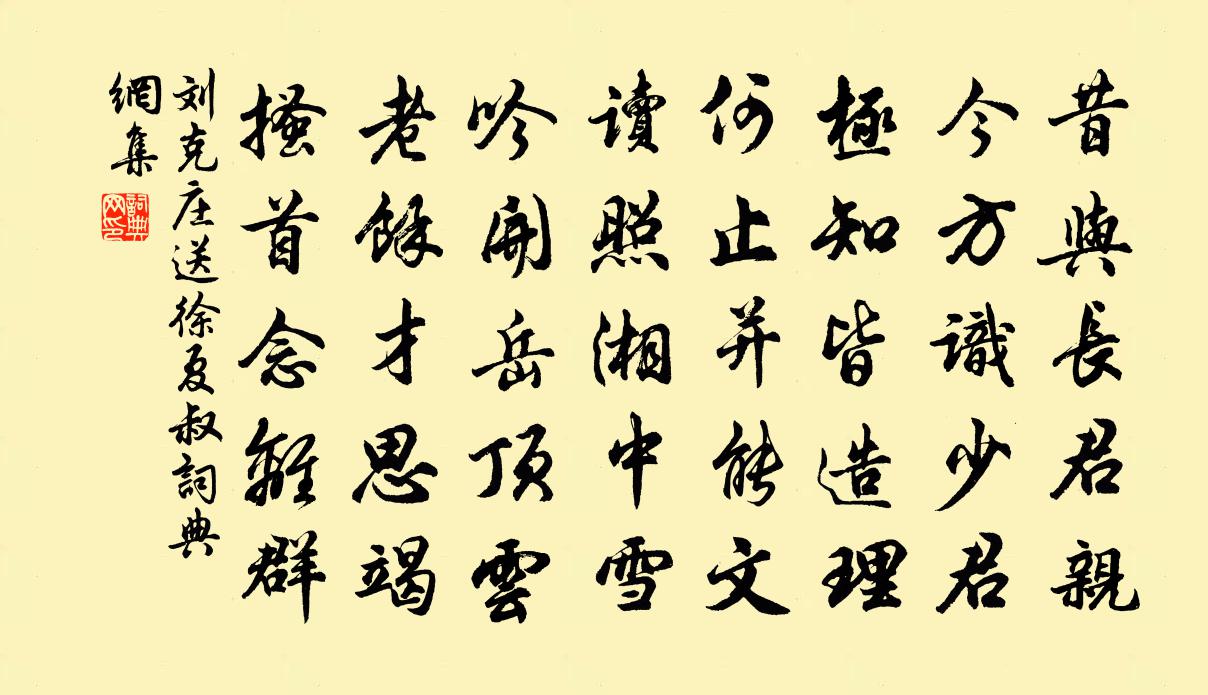 昔與長君親
今方識少君
極知皆造理
何止并能文
讀照湘中雪
吟開岳頂雲
老餘才思竭
搔首念離群
刘克庄送徐夏叔詞典
網集
詞典
网印